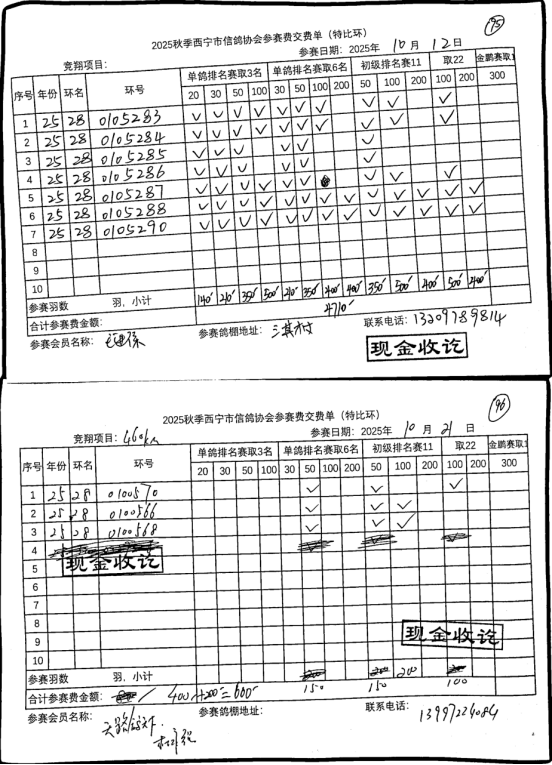 95
2025秋季西宁市信鸽协会参赛费交费单（特比环）
竞翔项目： 参赛日期：2025年 10 月 12 日
序号 年份 环名 环号 单鸽排名赛取3名 单鸽排名赛取6名 初级排名赛11 取22 金鹏赛取1
20 30 50 100 30 50 100 200 50 100 200 100 200 300
1 25 28 0105283 ✓ ✓ ✓ ✓ ✓ ✓ ✓ ✓ ✓ ✓
2 25 28 0105284 ✓ ✓ ✓ ✓ ✓ ✓ ✓ ✓ ✓ ✓
3 25 28 0105285 ✓ ✓ ✓ ✓ ✓ ✓
4 25 28 0105286 ✓ ✓ ✓ ✓ ✓ ✓
5 25 28 0105287 ✓ ✓ ✓ ✓ ✓ ✓ ✓ ✓ ✓
6 25 28 0105288 ✓ ✓ ✓ ✓ ✓ ✓ ✓ ✓ ✓ ✓ ✓ ✓ ✓
7 25 28 0105290 ✓ ✓ ✓ ✓ ✓ ✓ ✓ ✓ ✓ ✓ ✓ ✓ ✓
8
9
10
参赛羽数 羽，小计 140 210 350 500 210 350 400 400 350 500 400 500 400
合计参赛费金额： 4710
参赛会员名称： 参赛鸽棚地址： 联系电话：13209789814
现金收讫
96
2025秋季西宁市信鸽协会参赛费交费单（特比环）
竞翔项目：460km 参赛日期：2025年 10 月 21 日
序号 年份 环名 环号 单鸽排名赛取3名 单鸽排名赛取6名 初级排名赛11 取22 金鹏赛取1
20 30 50 100 30 50 100 200 50 100 200 100 200 300
1 25 28 0100570 ✓ ✓ ✓
2 25 28 0100566 ✓ ✓ ✓
3 25 28 0100568 ✓ ✓ ✓
4
5 现金收讫
6
7
8
9 现金收讫
10
参赛羽数 羽，小计 200
合计参赛费金额： 400+200=600 150 150 100
参赛会员名称： 参赛鸽棚地址： 联系电话：13997224084